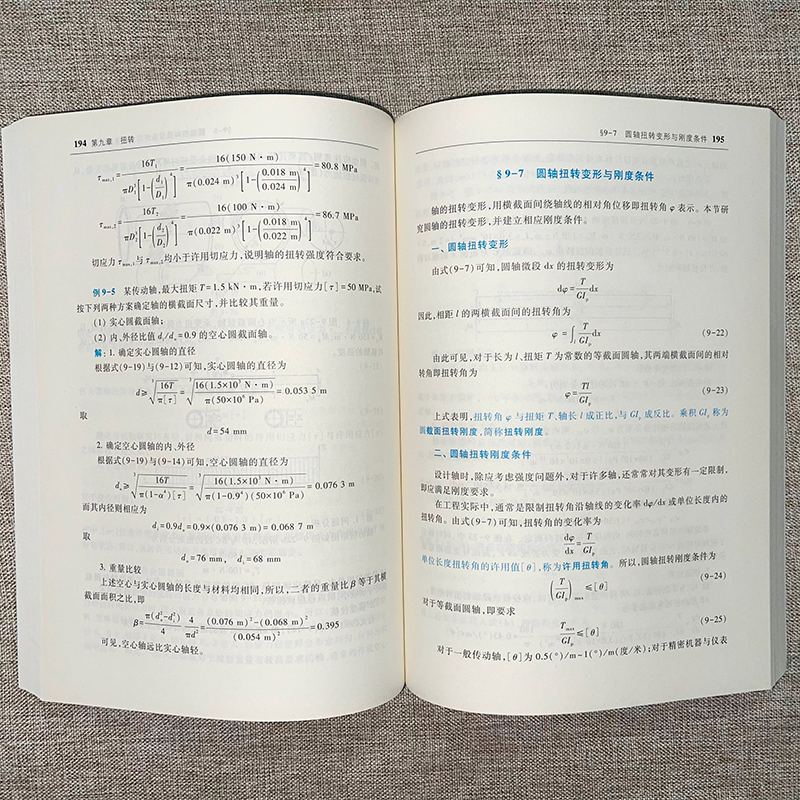 194 第九章 扭转
τmax,1 = 16T₁ / πD₁³[1-(d₁/D₁)⁴] = 16(150 N·m) / π(0.024 m)³[1-(0.018 m/0.024 m)⁴] = 80.8 MPa
τmax,2 = 16T₂ / πD₂³[1-(d₂/D₂)⁴] = 16(100 N·m) / π(0.022 m)³[1-(0.018 m/0.022 m)⁴] = 86.7 MPa
切应力 τmax,1与 τmax,2均小于许用切应力,说明轴的扭转强度符合要求。
例 9-5 某传动轴,最大扭矩 T=1.5 kN·m,若许用切应力[τ]=50 MPa,试
按下列两种方案确定轴的横截面尺寸,并比较其重量。
(1) 实心圆截面轴;
(2) 内、外径比值 dᵢ/dₒ=0.9 的空心圆截面轴。
解: 1. 确定实心圆轴的直径
根据式(9-19)与(9-12)可知,实心圆轴的直径为
d ≥ ³√(16T/π[τ]) = ³√(16(1.5×10³ N·m)/π(50×10⁶ Pa)) = 0.053 5 m
取
d=54 mm
2. 确定空心圆轴的内、外径
根据式(9-19)与(9-14)可知,空心圆轴的直径为
dₒ ≥ ³√(16T/π(1-α⁴)[τ]) = ³√(16(1.5×10³ N·m)/π(1-0.9⁴)(50×10⁶ Pa)) = 0.076 3 m
而其内径则相应为
dᵢ=0.9dₒ=0.9×(0.076 3 m)=0.068 7 m
取
dₒ=76 mm, dᵢ=68 mm
3. 重量比较
上述空心与实心圆轴的长度与材料均相同,所以,二者的重量比 β 等于其横
截面面积之比,即
β = π(dₒ²-dᵢ²)/4 · 4/πd² = ((0.076 m)²-(0.068 m)²)/(0.054 m)² = 0.395
可见,空心轴远比实心轴轻。
§9-7 圆轴扭转变形与刚度条件 195
§9-7 圆轴扭转变形与刚度条件
轴的扭转变形,用横截面间绕轴线的相对角位移即扭转角 φ 表示。本节研
究圆轴的扭转变形,并建立相应刚度条件。
一、圆轴扭转变形
由式(9-7)可知,圆轴微段 dx 的扭转变形为
dφ = T/GIₚ dx
因此,相距 l 的两横截面间的扭转角为
φ = ∫ₗ T/GIₚ dx (9-22)
由此可见,对于长为 l、扭矩 T 为常数的等截面圆轴,其两端横截面间的相对
转角即扭转角为
φ = Tl/GIₚ (9-23)
上式表明,扭转角 φ 与扭矩 T、轴长 l 成正比,与 GIₚ 成反比。乘积 GIₚ 称为
圆截面扭转刚度,简称扭转刚度。
二、圆轴扭转刚度条件
设计轴时,除应考虑强度问题外,对于许多轴,还常常对其变形有一定限制,
即应满足刚度要求。
在工程实际中,通常是限制扭转角沿轴线的变化率 dφ/dx 或单位长度内的
扭转角。由式(9-7)可知,扭转角的变化率为
dφ/dx = T/GIₚ
单位长度扭转角的许用值[θ],称为许用扭转角。所以,圆轴扭转刚度条件为
(T/GIₚ)max ≤ [θ] (9-24)
对于等截面圆轴,即要求
Tmax/GIₚ ≤ [θ] (9-25)
对于一般传动轴,[θ]为 0.5(°)/m~1(°)/m(度/米);对于精密机器与仪表